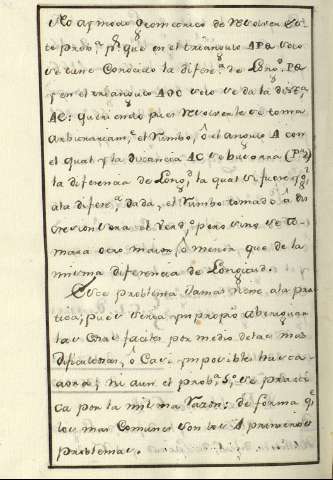 No ay modo Geometrico de resolver es-
te prob.ᵃ p.ʳ que en el triangulo APQ solo
se tiene conocido la difer.ᵃ de Long.ᵈ PQ
y en el triangulo ADC solo se da la dist.ᵃ
AC: queriendo pues resolverle se toma
arbitrariam.ᵉ el rumbo, ô el angulo A con
el qual y la distancia AC se buscara
la diferencia de Long.ᵈ la qual si fuere ig.ˡ
ala difer.ᵃ dada, el rumbo tomado â dis
crecion sera el verd.ᵒ pero sino se to-
mara otro maior, ô menor, que de la
misma diferencia de Longitud.
Este problema jamas viene ala prac
tica, pues seria impropio averiguar
las cosas faciles por medio delas mas
dificultosas, ô casi imposibles hasta
aora; ni aun el prob.ᵃ 5.º se practi
ca por la misma razon: de forma q.ᵉ
los mas comunes son los 4 primeros
problemas.